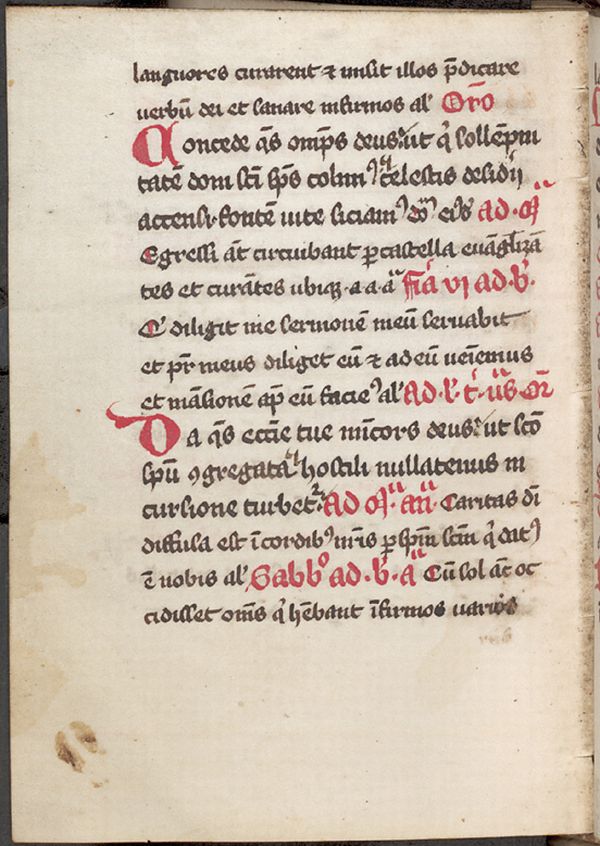 languores curarent ⁊ misit illos p̄dicare
verbū dei et sanare infirmos al' Oro̅
Concede q̄s omp̄s deus· ut q̇ sollēpni
tatē doni sc̄i sp̄s colim⁹ celestis desid'ij
accensi· fontē vite siciam⁹ ad· mᵃ
Egressi aūt circuibant p castella evāgelizā
tes et curātes ubiq₃ · a· a· aᵃ fīa vi ad· b'·
diligit me sermonē meū servabit
et pr̄ meus diliget eū ⁊ ad eū veiemus
et māsionē ap̄ eū facie⁹ al' Ad·
Da q̄s ecc̄ie tue mīcors deus· ut sc̄o
sp̄u ꝯgregata hostili nullatenus in
cursione turbet᷑ Ad mᵃ anᵃ Caritas dī
diffusa est ī cordib⁹ nr̄is p sp̄m sc̄m q̇ dat⁹
ē nobis al' Sabbᵒ ad· b'· aᵃ Cū sol aūt oc
cidisset om̄s q̇ hēbant īfirmos varios